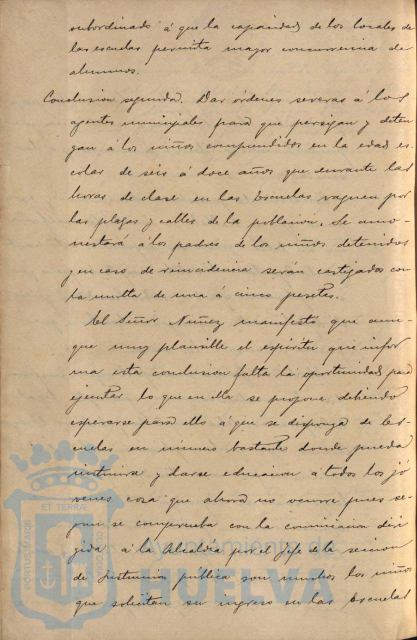 subordinado á que la capacidad de los locales de
las escuelas permita mayor concurrencia de
alumnos.
Conclusion segunda. Dar órdenes severas á los
agentes municipales para que persigan y deten
gan á los niños comprendidos en la edad es
colar de seis á doce años que durante las
horas de clase en las Escuelas vaguen por
las plazas y calles de la poblacion. Se amo
nestará á los padres de los niños detenidos
y en caso de reincidencia serán castigados con
la multa de una á cinco pesetas.
El Señor Nuñez manifestó que aun-
que muy plausible el espíritu que infor
ma esta conclusion falta la oportunidad para
ejecutar lo que en ella se propone, debiendo
esperarse para ello á que se disponga de Es-
cuelas en número bastante donde pueda
instruirse y darse educacion á todos los jó
venes cosa que ahora no ocurre pues se-
gun se comprueba con la comunicacion diri
gida á la Alcaldia por el Jefe de la seccion
de Instruccion publica son muchos los niños
que solicitan su ingreso en las Escuelas
PORTUS MARIS
ET TERRAE
CUSTODIA
Ayuntamiento de
HUELVA